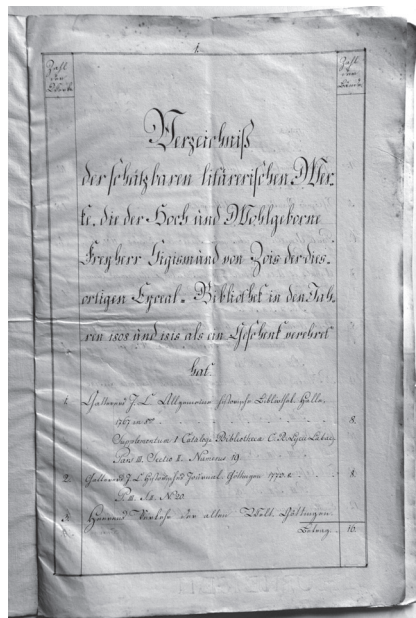 1.
Zahl der Werke
Zahl der Bände
Verzeichniß
der schätzbaren literärischen Wer-
ke, die der Hoch und Wohlgeborne
Freyherr Sigismund von Zois der dies-
ortigen Lyceal-Bibliothek in den Jah-
ren 1808 und 1818 als ein Geschenk verehret
hat.
1. Gatterers J. C. Allgemeine historische Bibliothek. Halle
1767 in 8vo 8.
Supplementum I Catalogi Bibliothecae C. R. Lycei Labac.
Pars III. Sectio I. Numerus 19
2. Gatterers J. C. historisches Journal. Göttingen 1772. 8.
P. III. S. I. No 20
3. der alten Welt. Göttingen.
Betrag 16.